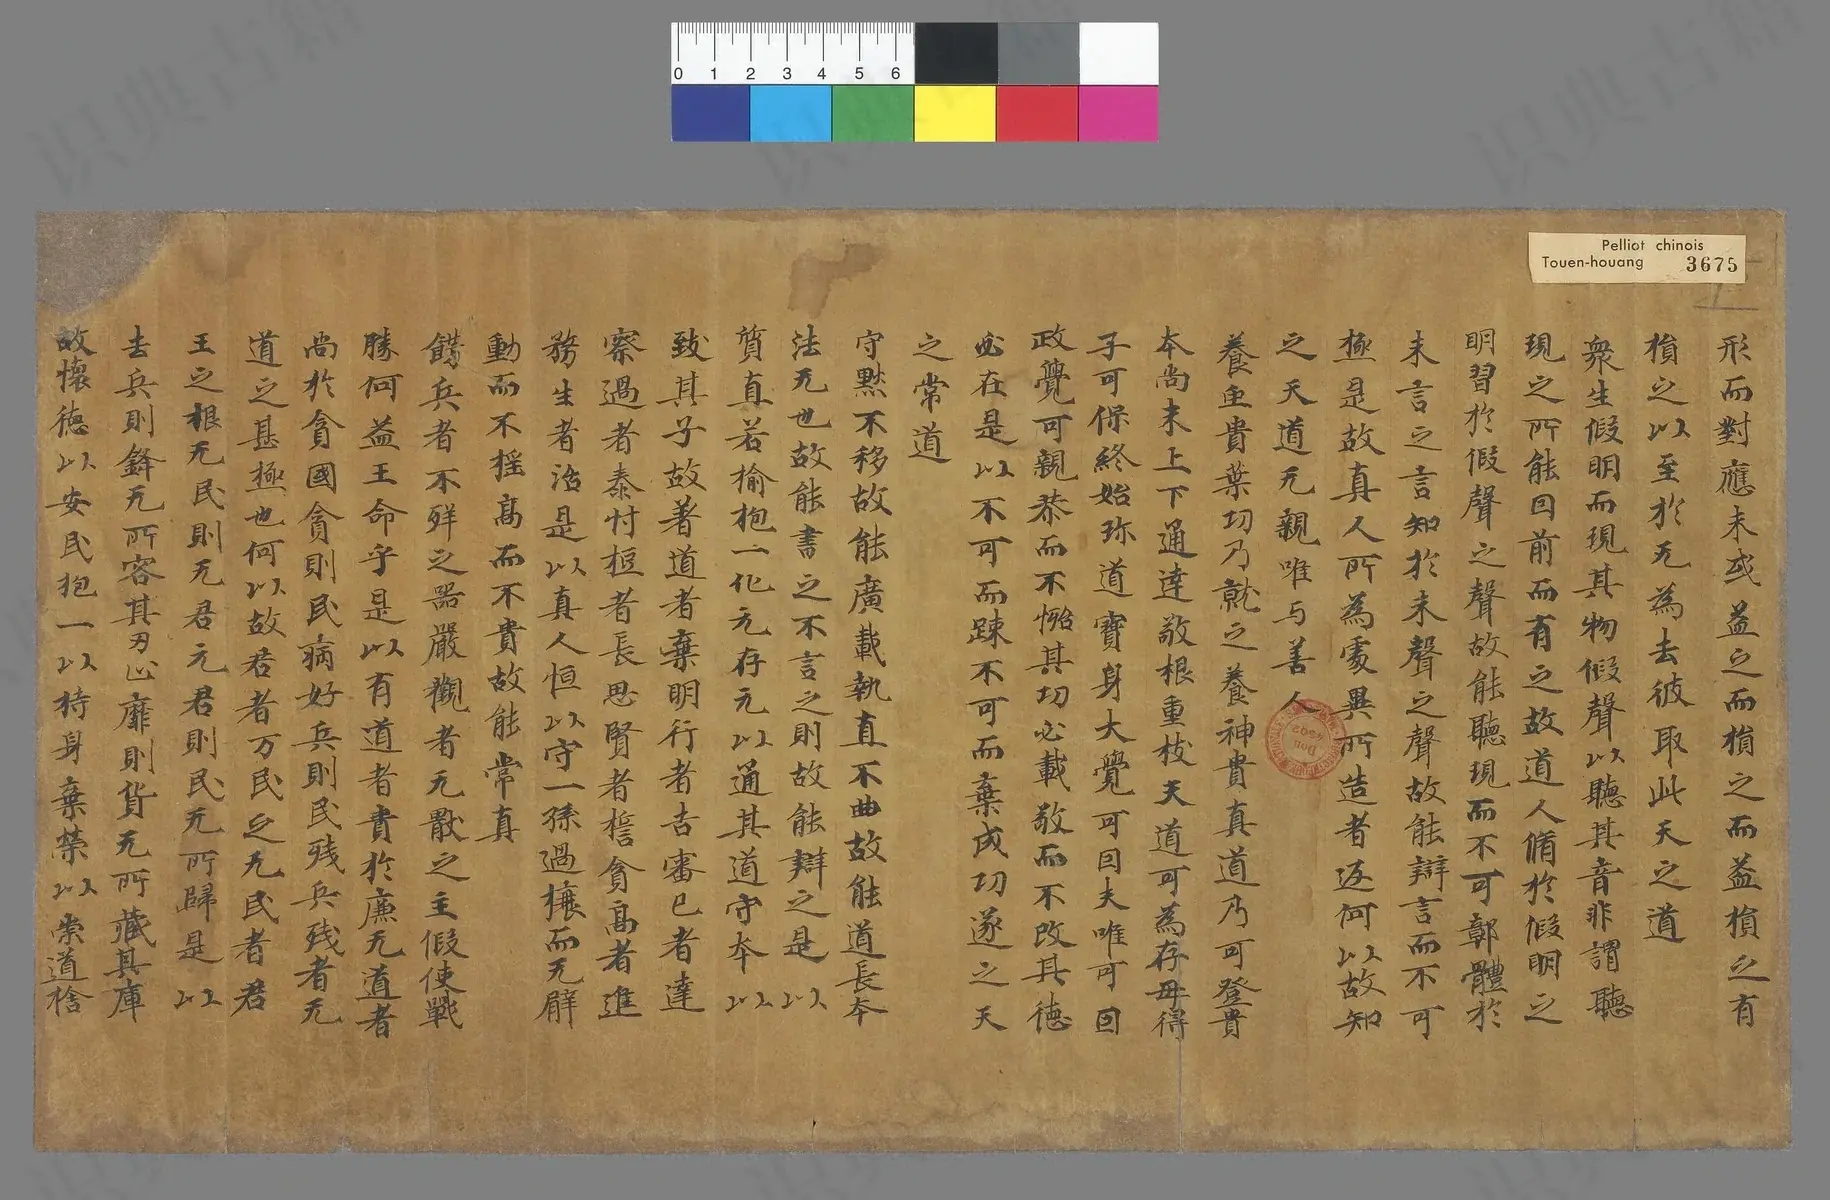 Pelliot chinois
Touen-houang 3675
0 1 2 3 4 5 6
形而對應未或益之而損之而益損之有
損之以至於无為去彼取此天之道
衆生假明而現其物假聲以聽其音非謂聽
現之所能回前而有之故道人脩於假明之
明習於假聲之聲故能聽現而不可鄣體於
未言之言知於未聲之聲故能辯言而不可
極是故真人所為處異所造者返何以故知
之天道无親唯与善人
養重貴葉切乃就之養神貴真道乃可登貴
本尚末上下通達敬根重枝夫道可為存母得
子可保終始珎道寶身大覺可回夫唯可回
政覺可親恭而不惱其切必載敬而不改其德
必在是以不可而踈不可而棄成功遂之天
之常道
守黙不移故能廣載執直不曲故能道長本
法无也故能書之不言之則故能辯之是以
質真若揄抱一化元存元以通其道守本以
致其子故著道者棄明行者去審已者達
察過者泰忖極者長思賢者信貪高者進
務生者浩是以真人恒以守一孫過欀而无辟
動而不揺高而不貴故能常真
餝兵者不祥之器嚴觀者无散之主假使戰
勝何益王命乎是以有道者責於廉无道者
尚於貪國貪則民病好兵則民殘兵殘者无
道之甚極也何以故君者万民之无民者君
王之根无民則无君无君則民无所歸是以
去兵則鋒无所容其刃山靡則貨无所藏其庫
故懷德以安民抱一以持身棄榮以崇道捨